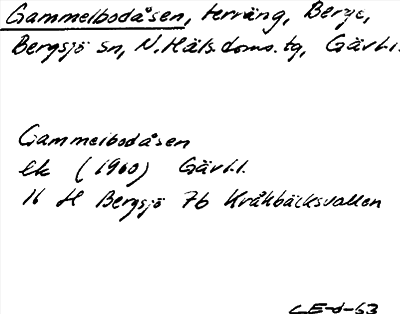 Gammelbodåsen, terräng, Berge,
Bergsjö sn, N. Häls. doms. tg, Gävl.l.
Gammelbodåsen
ek (1960) Gävl.l.
16 H Bergsjö 7b Kråkbäcksvallen
CE-d-63